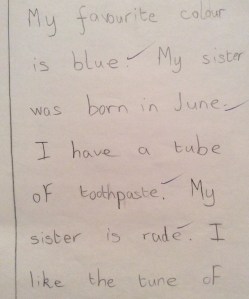 My favourite colour
is blue. My sister
was born in June.
I have a tube
of toothpaste. My
sister is rude. I
like the tune of